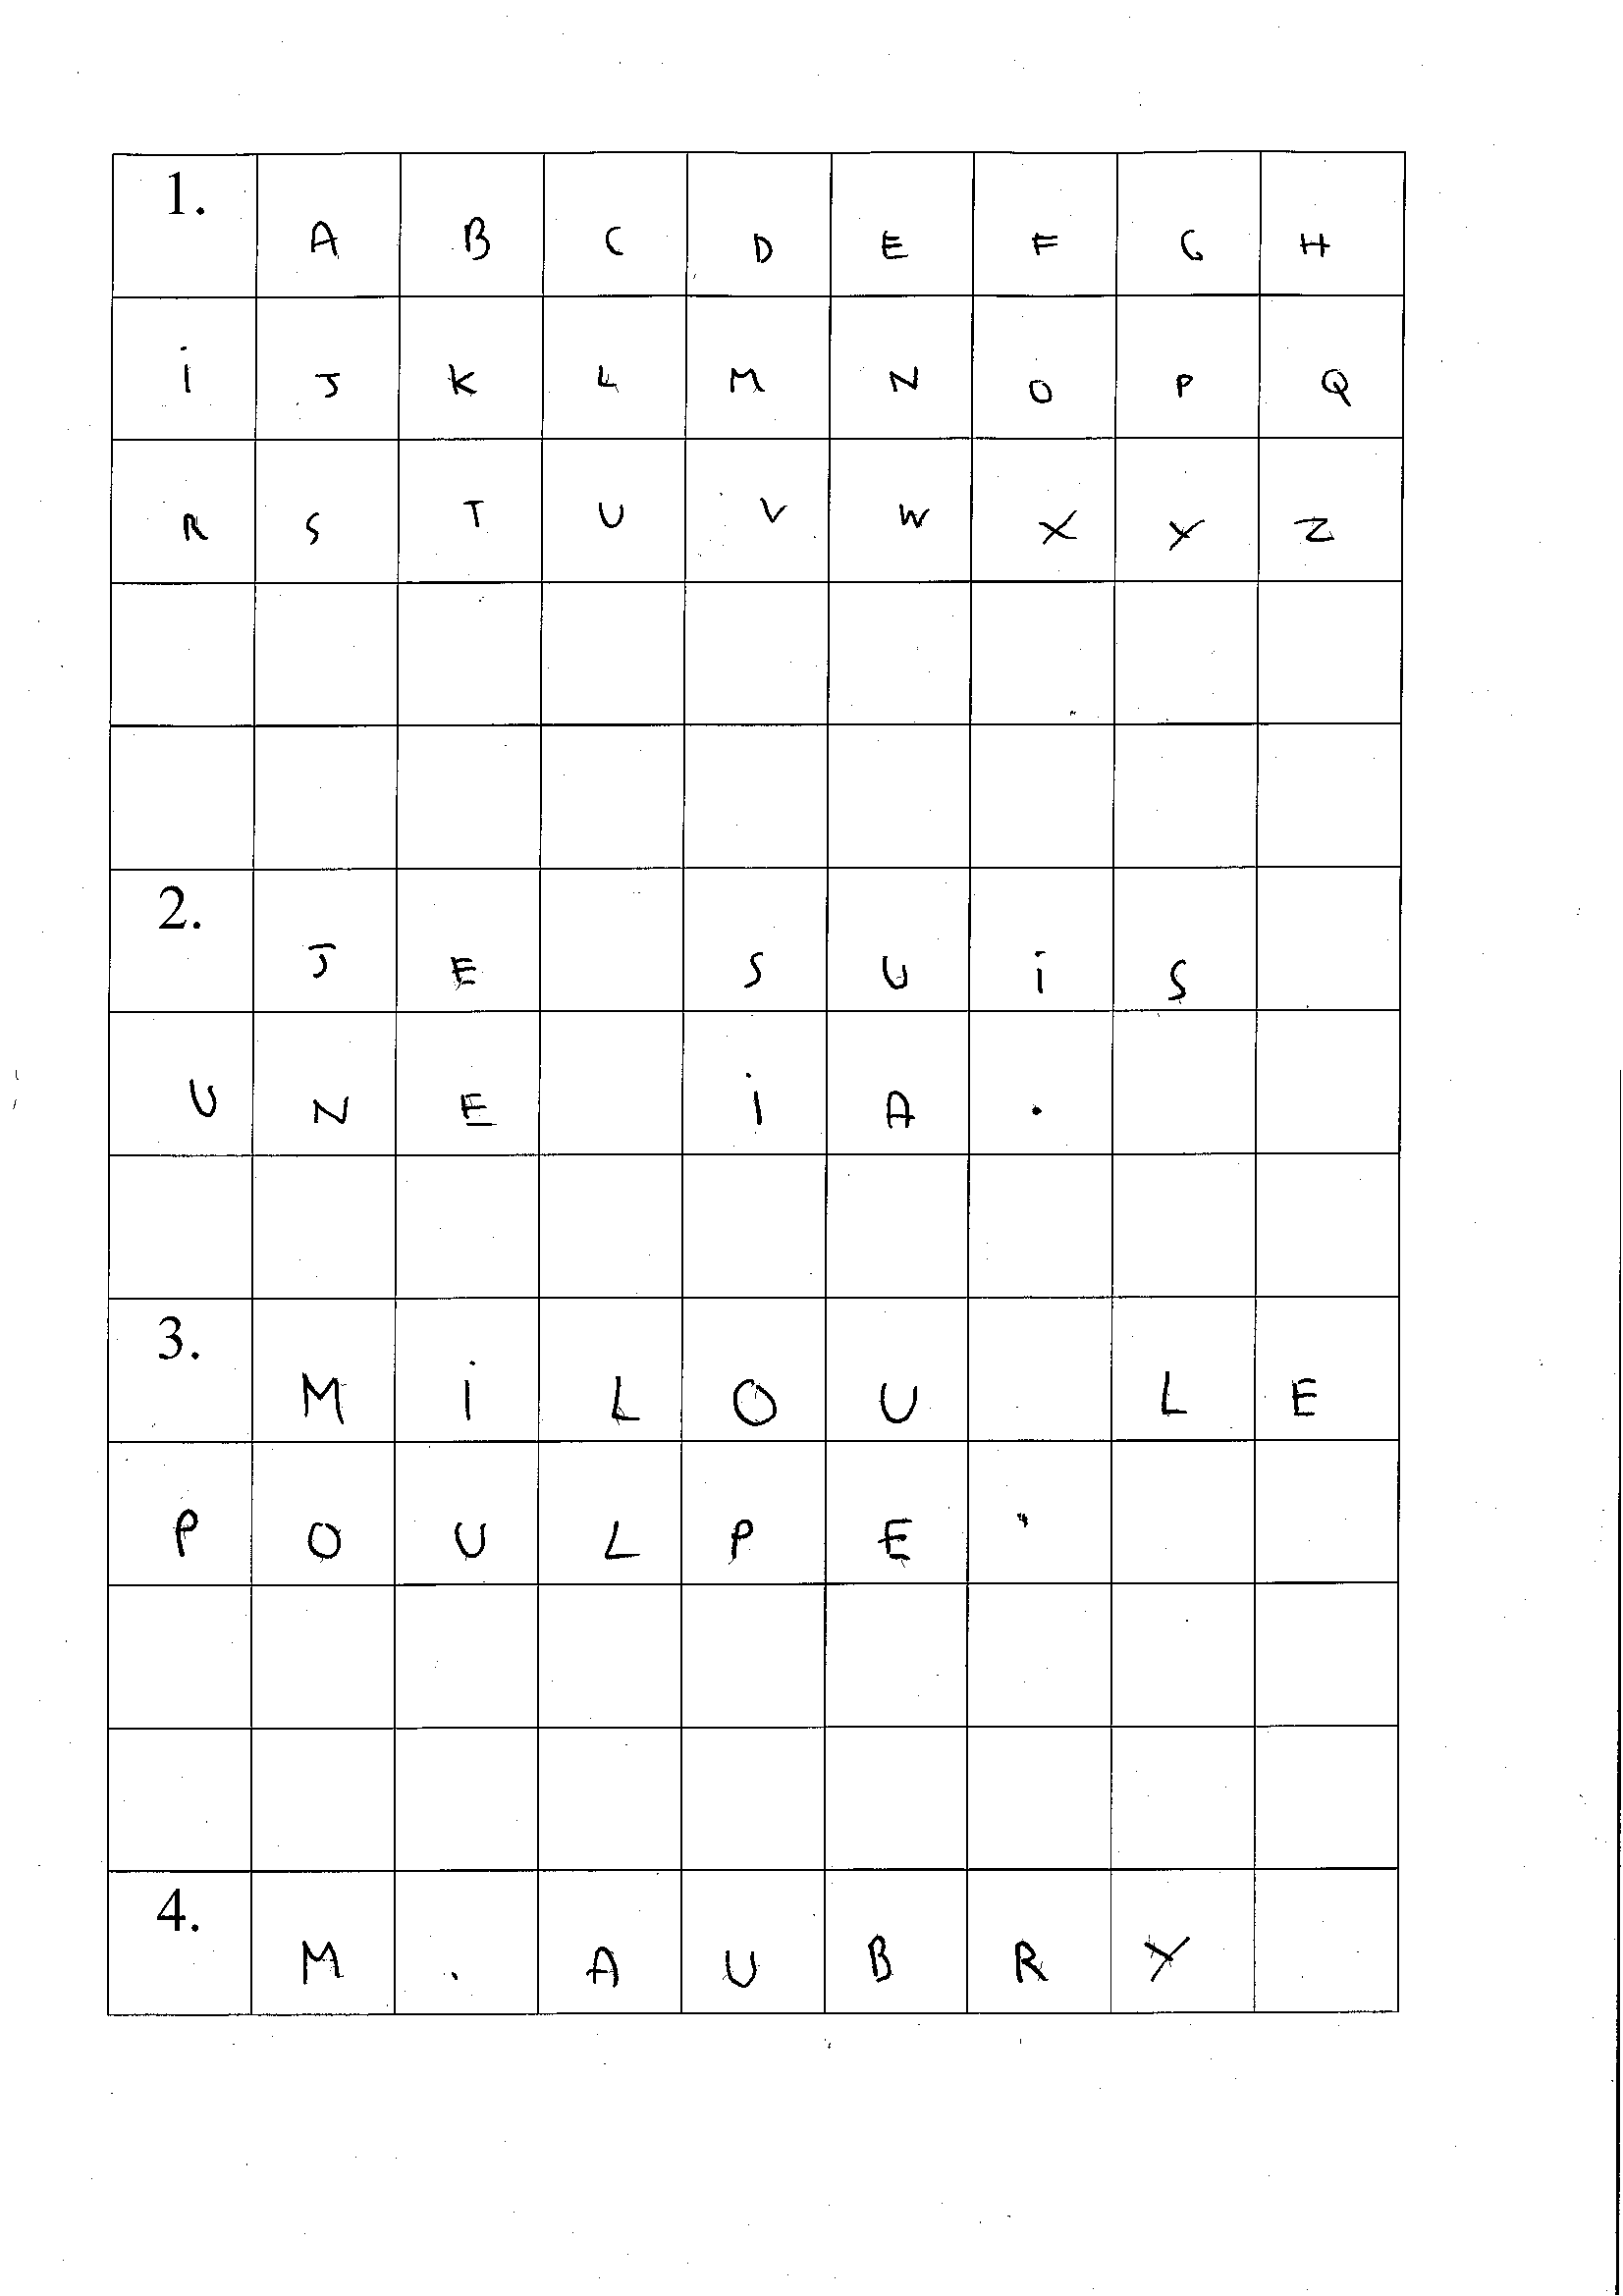 1. A B C D E F G H
i J K L M N O P Q
R S T U V W X Y Z
2. J E S U i S
U N E i A .
3. M i L O U L E
P O U L P E "
4. M . A U B R Y